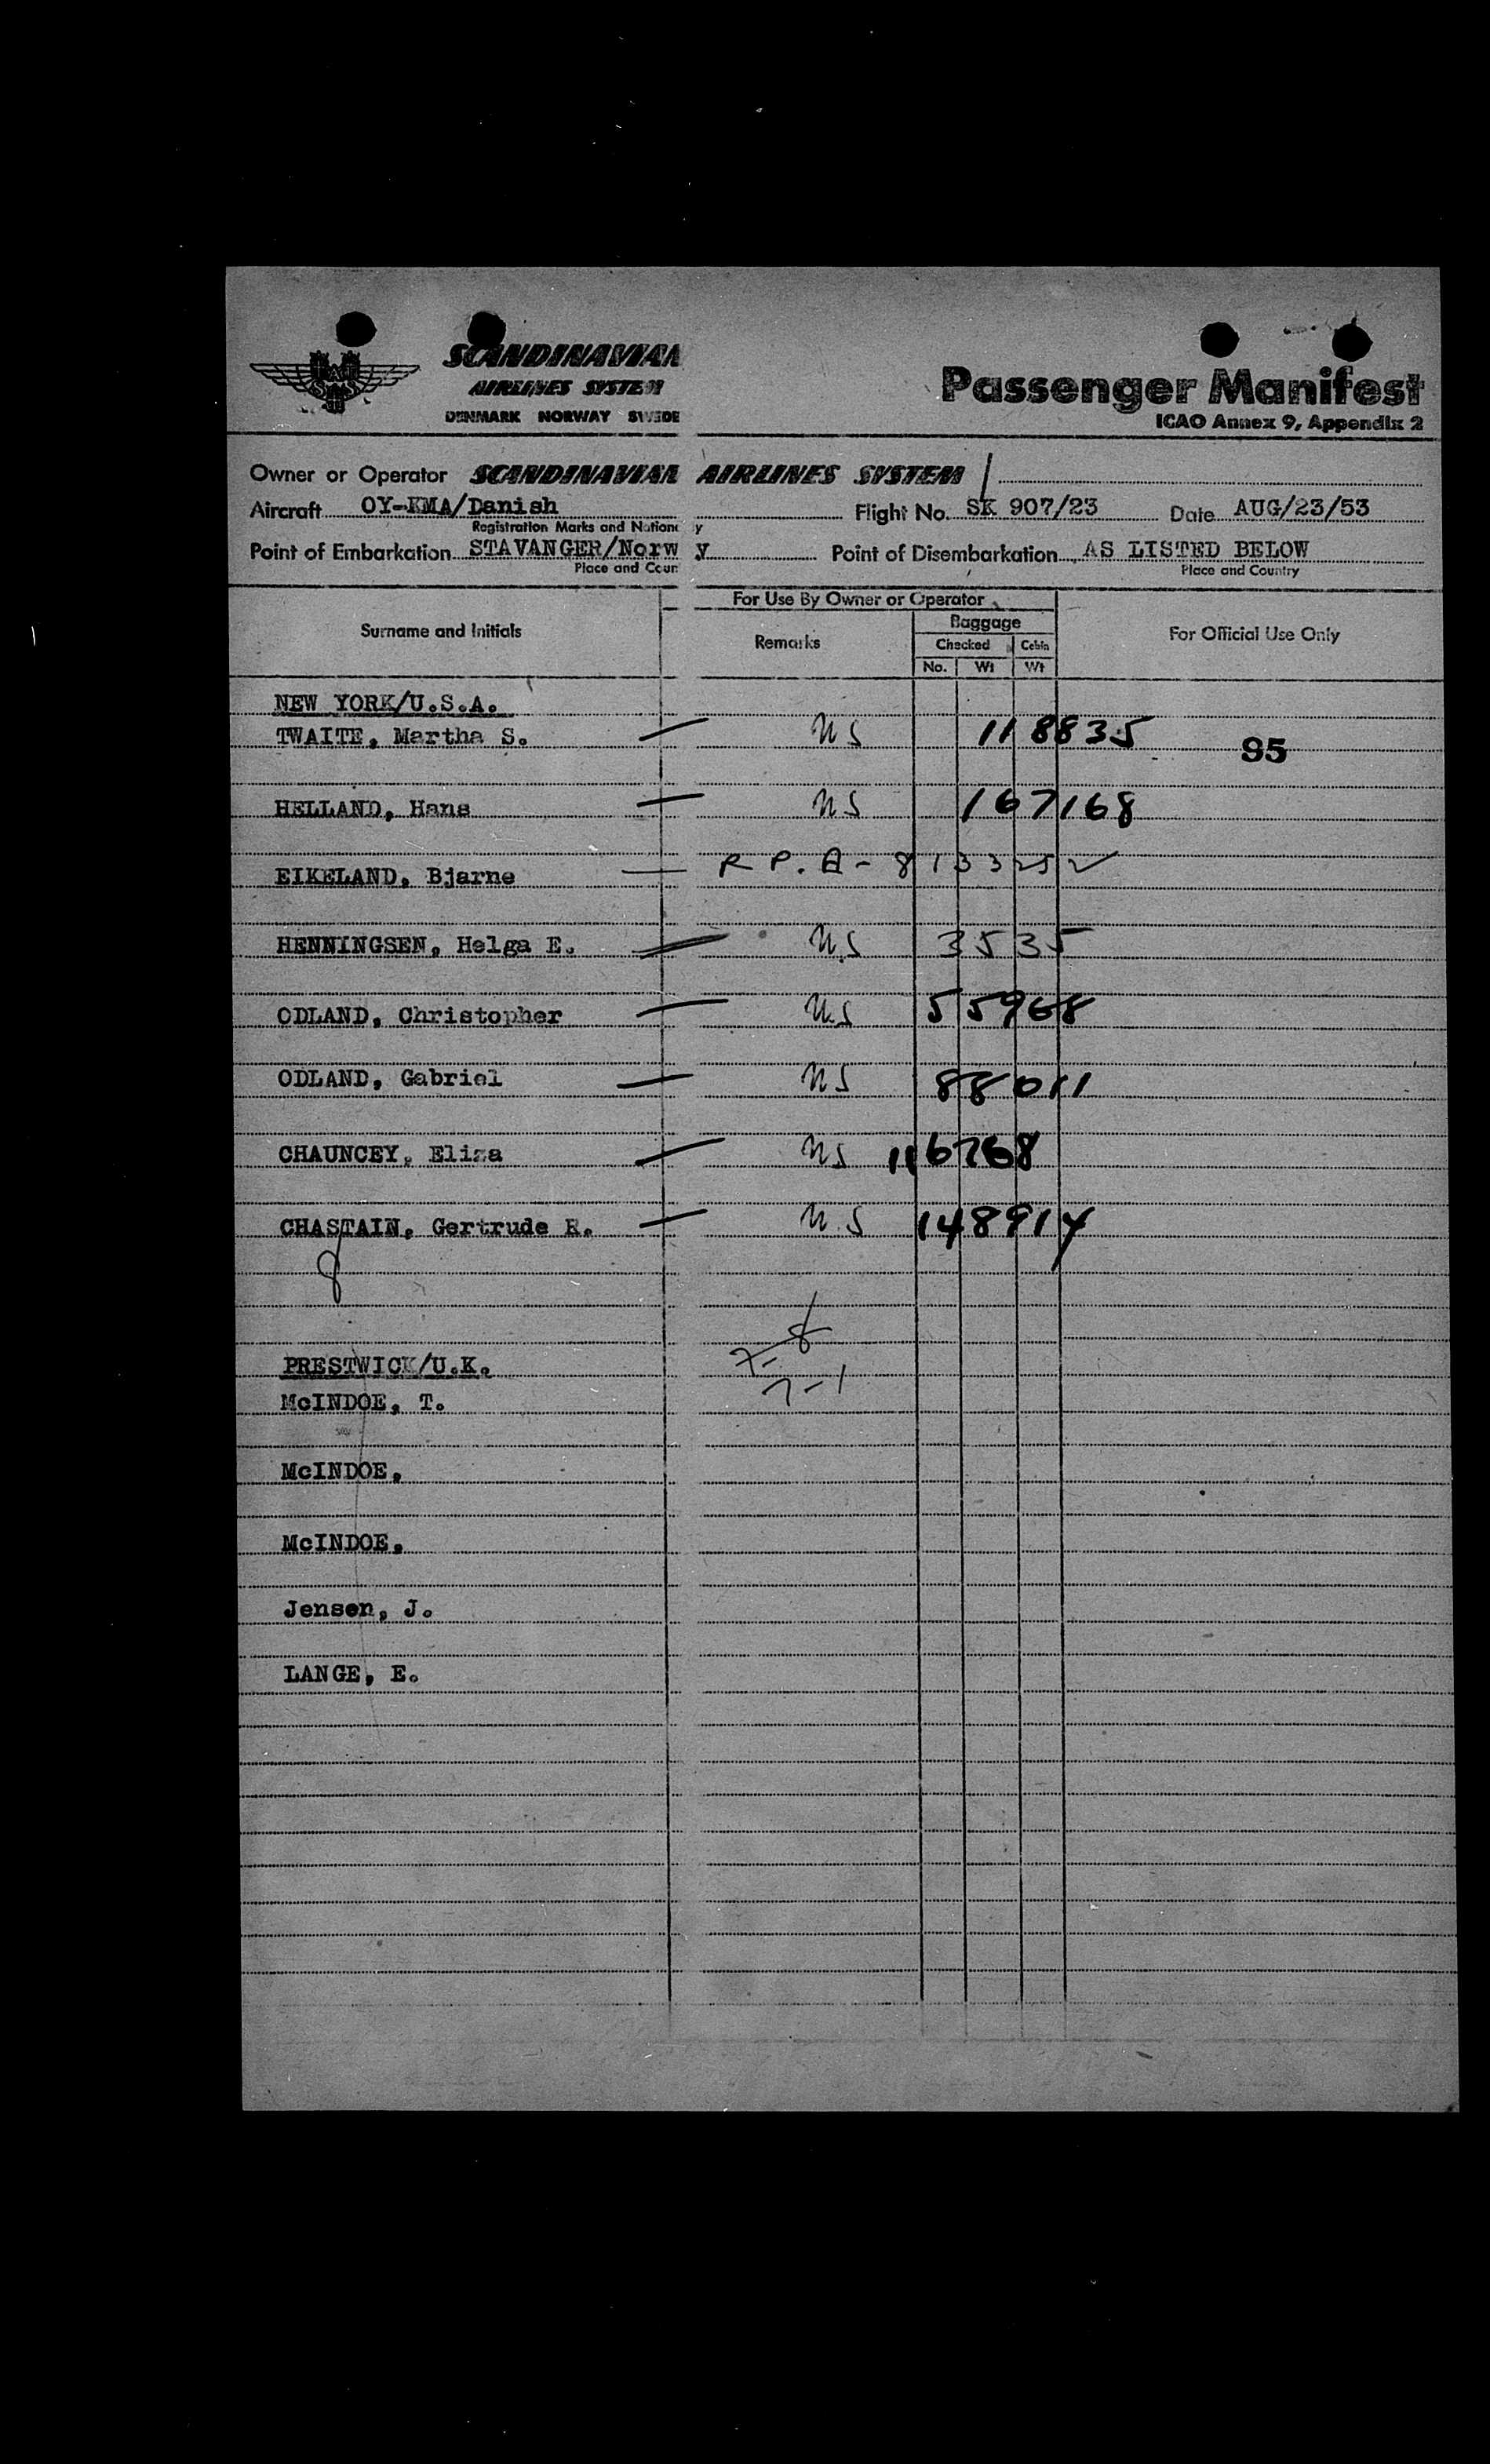 SCANDINAVIAN
AIRLINES SYSTEM
DENMARK NORWAY SWEDE
Passenger Manifest
ICAO Annex 9, Appendix 2
Owner or Operator SCANDINAVIAN AIRLINES SYSTEM
Aircraft OY-KMA/Danish Flight No. SK 907/23 Date AUG/23/53
Registration Marks and Nation y
Point of Embarkation STAVANGER/Norw y Point of Disembarkation AS LISTED BELOW
Place and Coun Place and Country
For Use By Owner or Operator
Surname and Initials Remarks Baggage For Official Use Only
Checked Cabin
No. Wt Wt
NEW YORK/U.S.A.
TWAITE, Martha S. US 118835 95
HELLAND, Hans US 167168
EIKELAND, Bjarne R P. A-813325
HENNINGSEN, Helga E. US 3535
ODLAND, Christopher US 55968
ODLAND, Gabriel US 88011
CHAUNCEY, Eliza US 116768
CHASTAIN, Gertrude R. US 148914
8
8
7-1
PRESTWICK/U.K.
McINDOE, T.
McINDOE,
McINDOE,
Jensen, J.
LANGE, E.